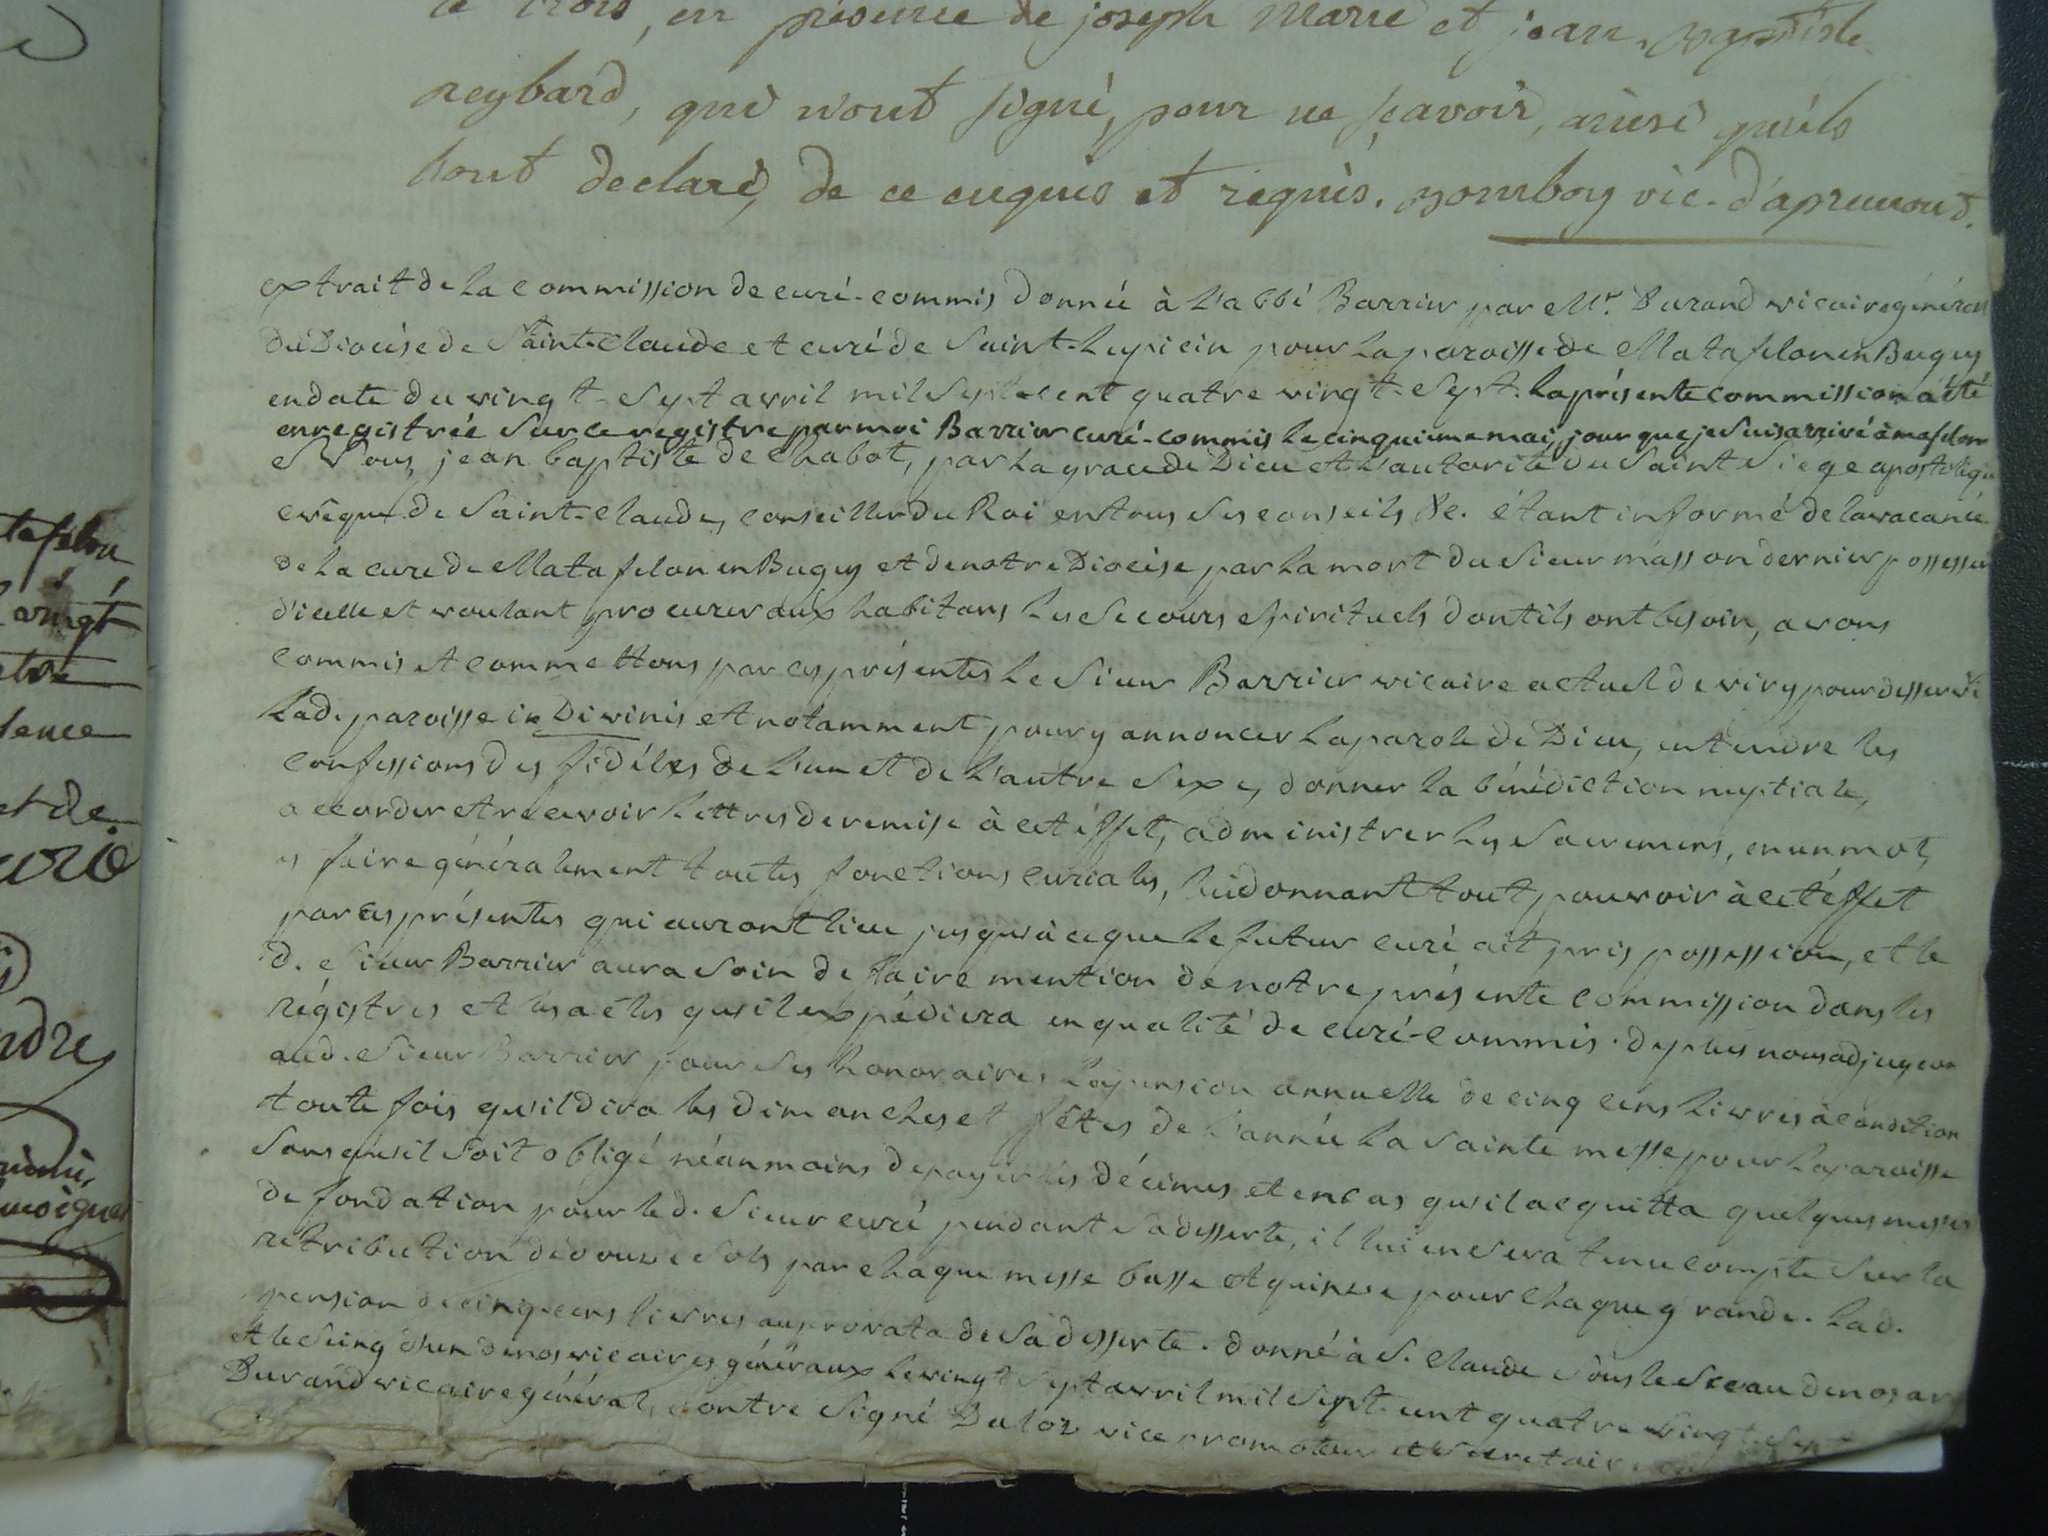 ce trois, en présence de joseph marie et jean, baptiste
reybard, qui n'ont signé, pour ne sçavoir, ainsi qu'ils
l'ont declaré, de ce enquis et requis. vic. d'apremont.
extrait de la commission de curé-commis donnée à l'abbé Barrier par Mr. Durand vicaire général
du Diocèse de Saint-Claude et curé de Saint-Lupicin pour la paroisse de Matafelon en Bugey
en date du vingt-sept avril mil sept cent quatre vingt-sept. la présente commission a été
enregistrée sur ce registre par moi Barrier curé-commis le cinquieme mai, jour que je suis arrivé à
Nous, jean baptiste de Chabot, par la grace de Dieu et l'autorité du Saint Siege apostolique
evêque de Saint-Claude, conseiller du Roi en tous ses conseils &c. étant informé de la vacance
de la cure de Matafelon en Bugey et de notre Diocèse par la mort du sieur masson dernier possesseur
d'icelle et voulant procurer aux habitans les secours spirituels dont ils ont besoin, avons
commis et commettons par ces présentes le Sieur Barrier vicaire actuel de viry pour desservi
lad. paroisse in Divinis et notamment pour y annoncer la parole de Dieu, entendre les
confessions des fidéles de l'un et de l'autre sexe, donner la bénédiction nuptiale,
accorder et recevoir lettres de remise à cet éffet, administrer les sacremens, en un mot,
y faire généralement toutes fonctions curiales, lui donnant tout pouvoir à cet éffet
par ces présentes qui auront lieu jusqu'à ce que le futur curé ait pris possession, et le
d. sieur Barrier aura soin de faire mention de notre présente commission dans les
régistres et les actes qu'il expédiera en qualité de curé-commis. de plus nous adjugeon
aud. sieur Barrier pour ses honoraires la pension annuelle de cinq cens livres à condition
toute fois qu'il dira les dimanches et fêtes de l'année la sainte messe pour la paroisse
sans qu'il soit obligé néanmoins de payer les décimes et en cas qu'il acquitta quelques messes
de fondation pour led. sieur curé pendant sa desserte, il lui en sera tenu compte sur la
rétribution de douze sols par chaque messe basse et quinze pour chaque grande. lad.
pension de cinq cens livres au prorata de sa desserte. donné à S. Claude sous le sceau de nos ar
et le seing d'un de nos vicaires généraux le vingt sept avril mil sept cent quatre vingt sept
Durand vicaire général, contre signé Daloz vice promoteur et secretaire